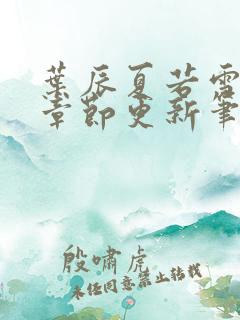 葉辰夏若雪
章節更新筆
殷嘯虎
未经同意禁止转载